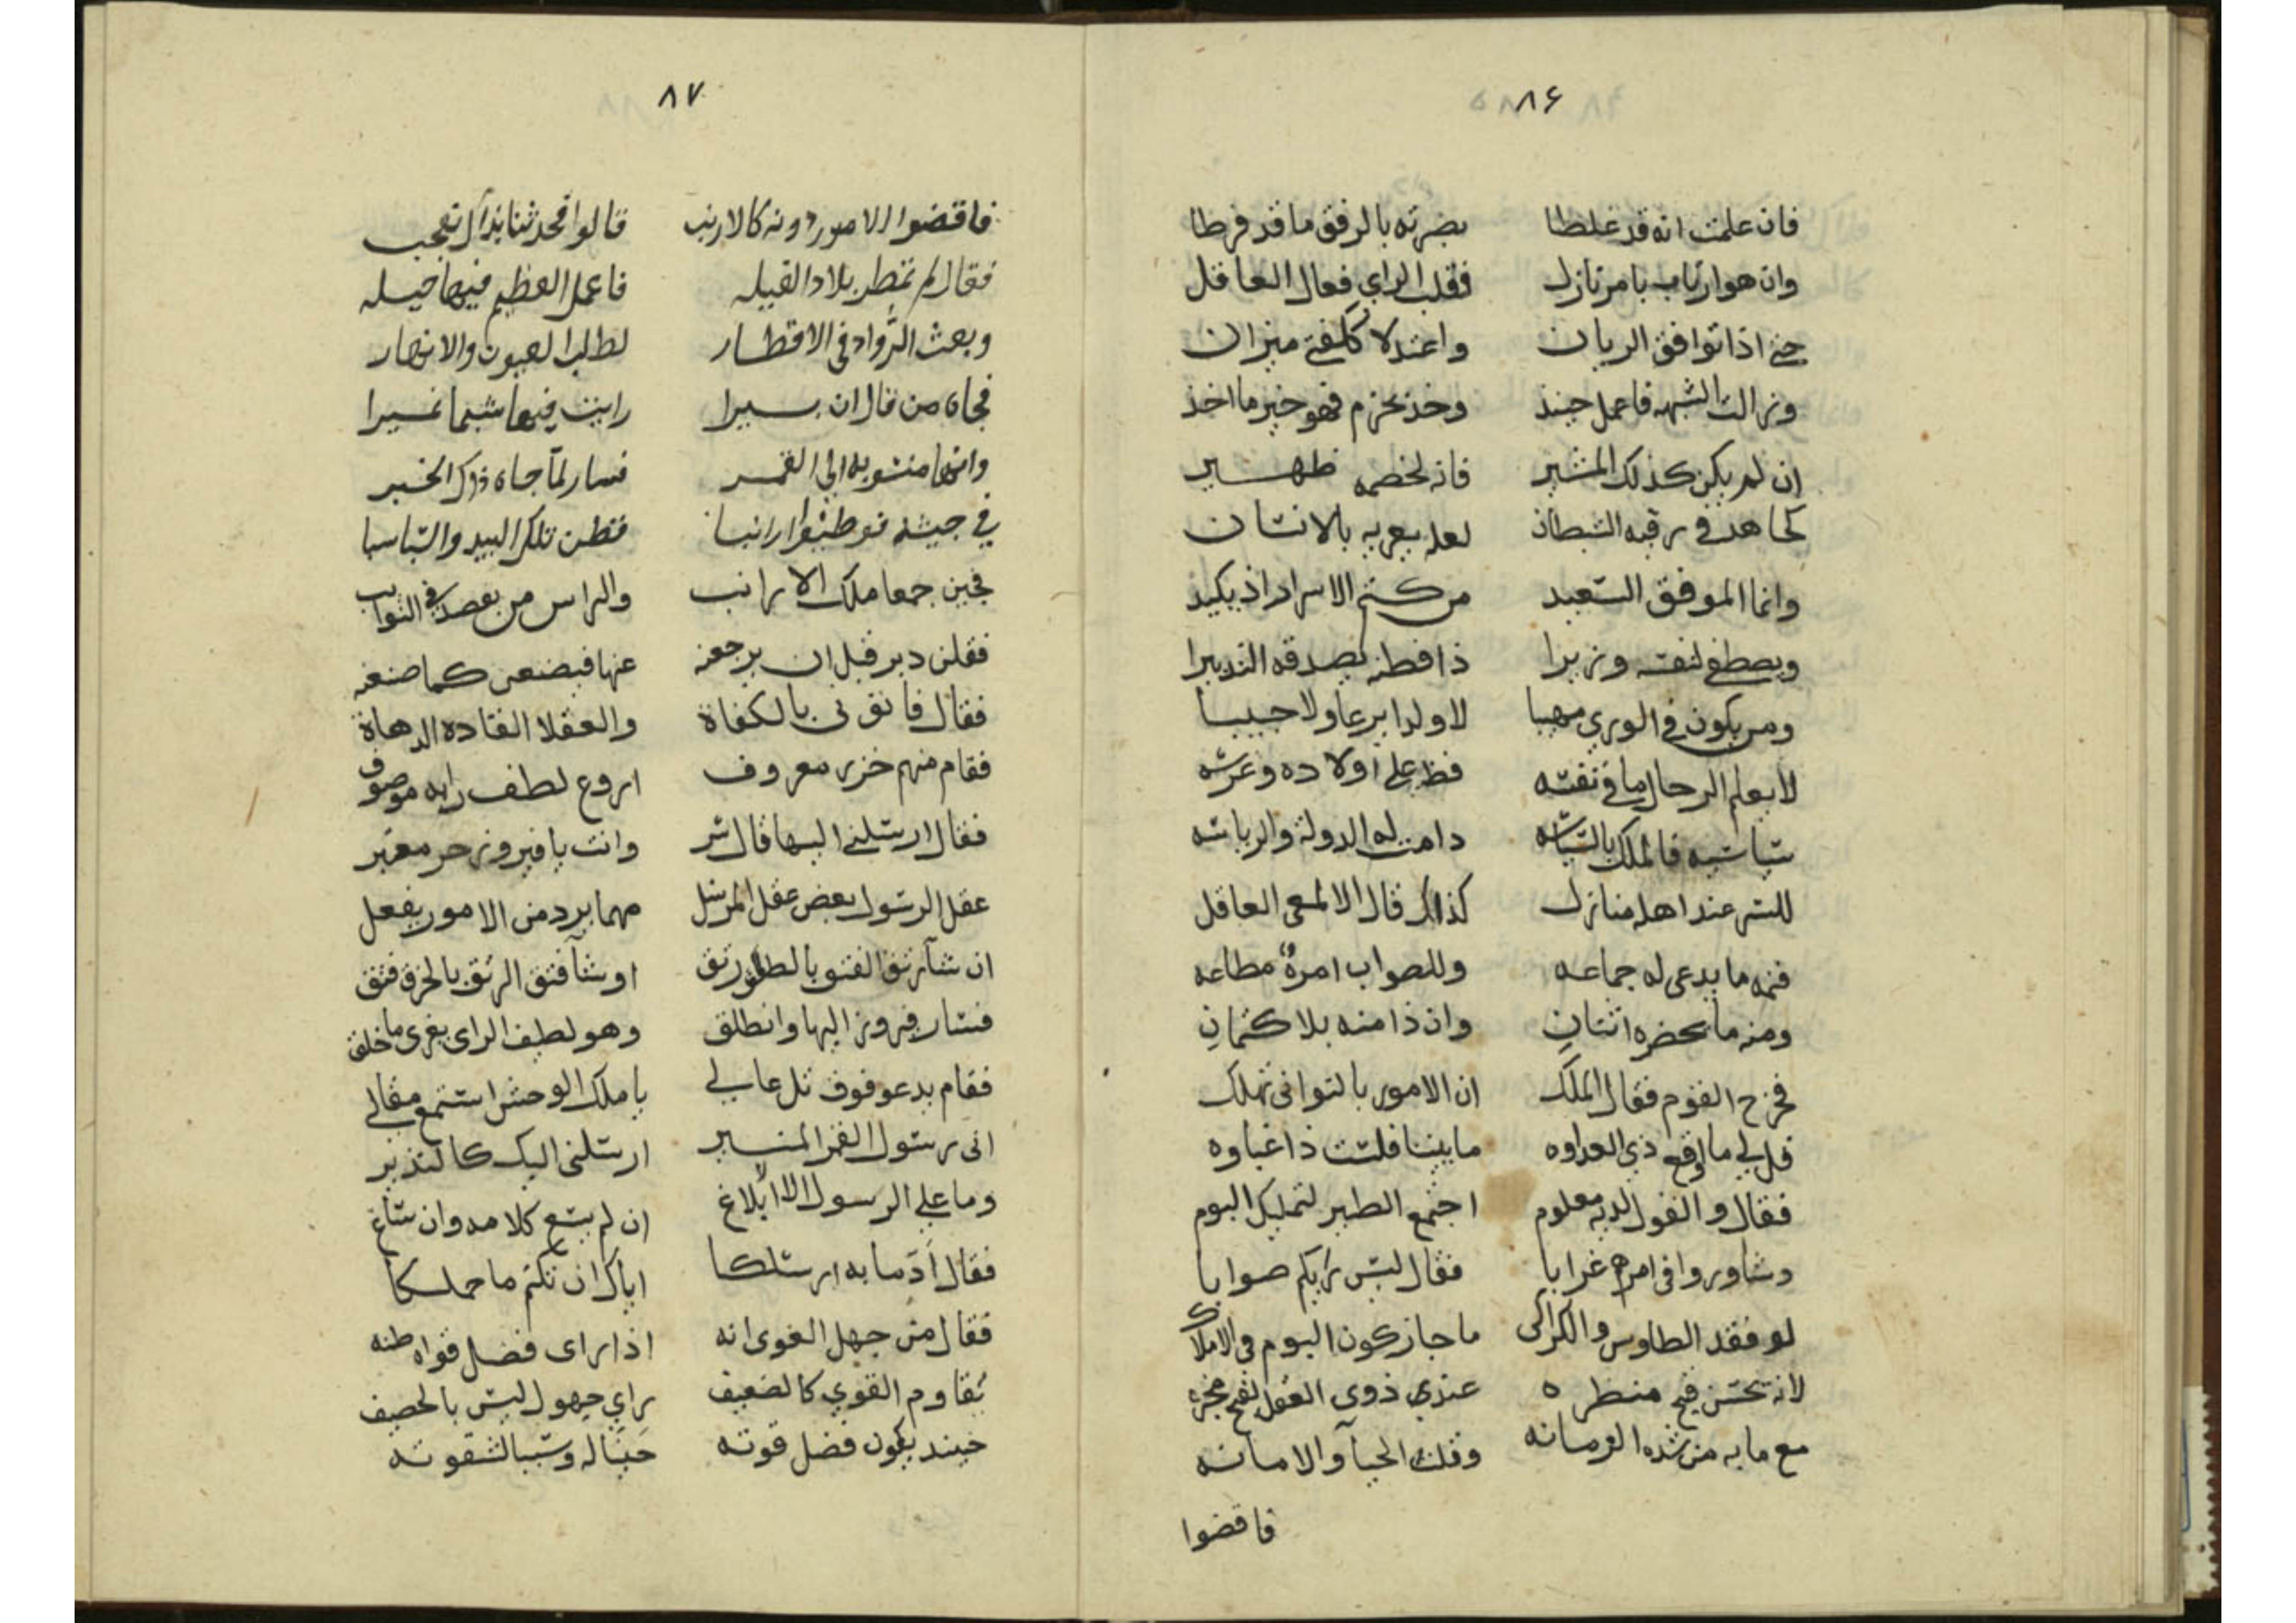 ٨٦
فان علمت انه قد غلطا بصرته بالرفق ما قد فرطا
وان هو ارتاب بامر نازل فقلب الراي فعال العاقل
حتى اذا توافق الريان واعتدلا ككفتي ميزان
وزالت الشبهه فاعمل حينئذ وخذ بحزم فهو خير ما اخذ
ان لم يكن كذلك المشير فانه لخصمه ظهير
كجاهد في رقيه الشيطان لعله يغريه بالانسان
وانما الموفق السعيد من كتم الاسرار اذ يكيد
ويصطفي لنفسه وزيرا ذا فطنه يصدقه التدبيرا
ومن يكون في الورى مهيبا لا ولدا يرعا ولا حبيبا
لا يعلم الرجال ما في نفسه فظ على اولاده وعرسه
سياسيه فالملك بالسياسه دامت له الدولة والرياسه
للسر عند اهله منازل كذاك قال الالمعي العاقل
فمنه ما يدعى له جماعه وللصواب امرة مطاعه
ومنه ما يحضره اثنان وان ذا منه بلا كتمان
فخرج القوم فقال الملك ان الامور بالتواني تهلك
قل لي ما اوقع ذي العداوه ما بيننا فلست ذا غباوه
فقال والقول لديه معلوم اجتمع الطير لتمليك البوم
وشاوروا في امرهم غرابا فقال ليس رايكم صوابا
لو فقد الطاوس والكراكي ما جاز كون البوم في الاملاك
لانه يحسن قبح منظره عندي ذوي العقل لقبح مخبره
مع ما به من شده العرمانه وقلت الحيآ والامانه
فاقضوا
٨٧
فاقضوا الامور دونه كالارنب قالوا فحدثنا بذاك نعجب
فقال لم تمطر بلاد الفيله فاعمل العظيم فيها حيله
وبعث الرواد في الاقطار لطلب العيون والانهار
فجاه من قال ان بيرا رايت فيها شبما نميرا
وانها منسوبه الى القمر فسار لما جاه ذاك الخبر
في جيشه فوطيوا ارانبا فقطن تلك البيد والسباسبا
فجين جمعا ملك الارانب والراس من يعصد في النوايب
فقلن دبر قبل ان يرجعنه عنها فيصنعن كما صنعنه
فقال فاتوني بالكفاة والعقلا القاده الدهاة
فقام منهم خزز معروف اروع لطف رايه موصوف
فقال ارسلني اليها قال سر وانت يا فيروز حر معتبر
عقل الرسول بعض عقل المرسل مهما يرد من الامور يفعل
ان شآ رتق الفتق بالطف رتق او شآ فتق الرتق بالخرق فتق
فسار فيروز اليها وانطلق وهو لطيف الراي يفري ما خلق
فقام يدعو فوق تل عالي يا ملك الوحش استمع مقالي
انى رسول القمر المنير ارسلني اليك كالنذير
وما على الرسول الا ابلاغ ان لم يسع كلامه وان ساغ
فقال اد ما به ارسلكا اياك ان تكتم ما حملكا
فقال من جهل الغوى انه اذا راى فضل قواه ظنه
يقاوم القوي كالضعيف راي جهول ليس بالحصيف
حينئذ يكون فضل قوته حينا له وسببا لشقوته